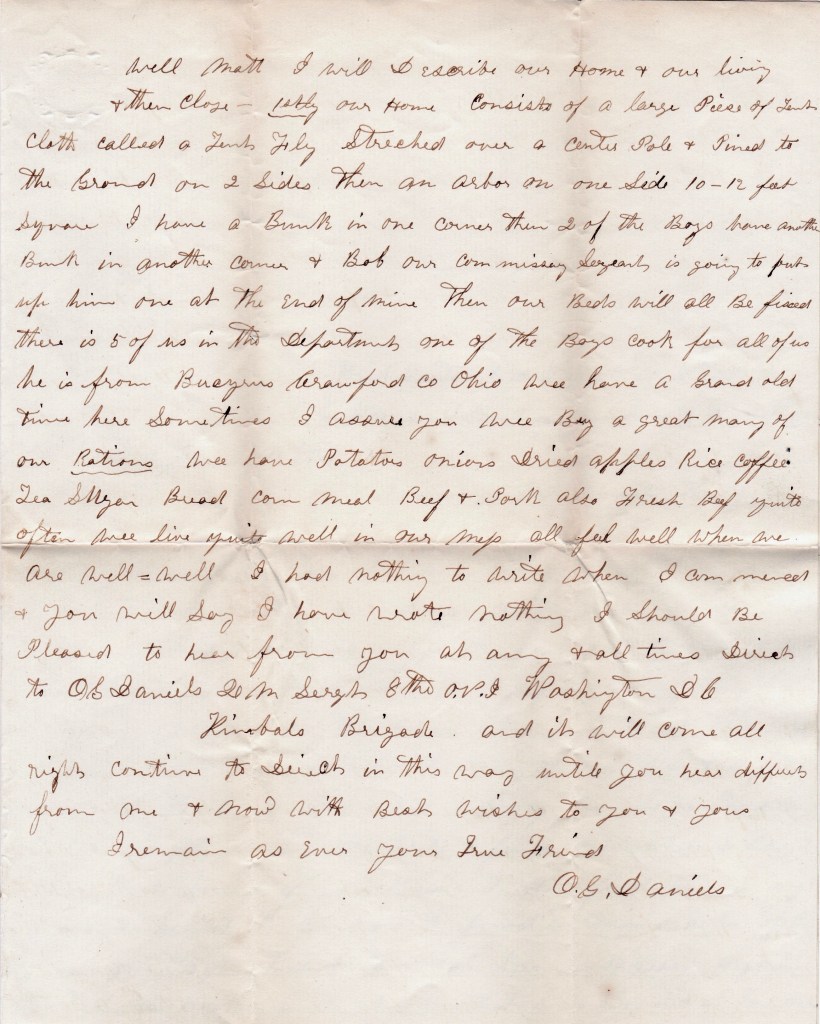 Well Matt I will Describe our Home & our living
& then Close - 1stly our Home Consists of a large Piese of Tent
Cloth called a Tent Fly Streched over a center Pole & Pined to
the Ground on 2 Sides then an arbor on one Side 10-12 feet
Square I have a Bunk in one corner then 2 of the Boys have another
Bunk in another corner & Bob our Commissay Sergeant is going to put
up him one at the End of mine then our Beds will all Be fixed
there is 5 of us in the Department one of the Boys cook for all of us
he is from Bucyrus Crawford Co Ohio wee have a Grand old
time here Sometimes I assure you wee Buy a great many of
our Rations wee have Potatoes onions Dried apples Rice coffee
Tea Sugar Bread corn meal Beef & Pork also Fresh Beef quite
often wee live quite well in our mess all feel well when we
are well = well I had nothing to write when I commenced
& you will Say I have wrote nothing I Should Be
Pleased to hear from you at any & all times Direct
to O G Daniels Q M Sergt 8th O.V.I Washington D C
Kimbals Brigade. and it will come all
right continue to Direct in this way untile you hear different
from me & now with Best wishes to you & yours
I remain as Ever your True Friend
O.G. Daniels